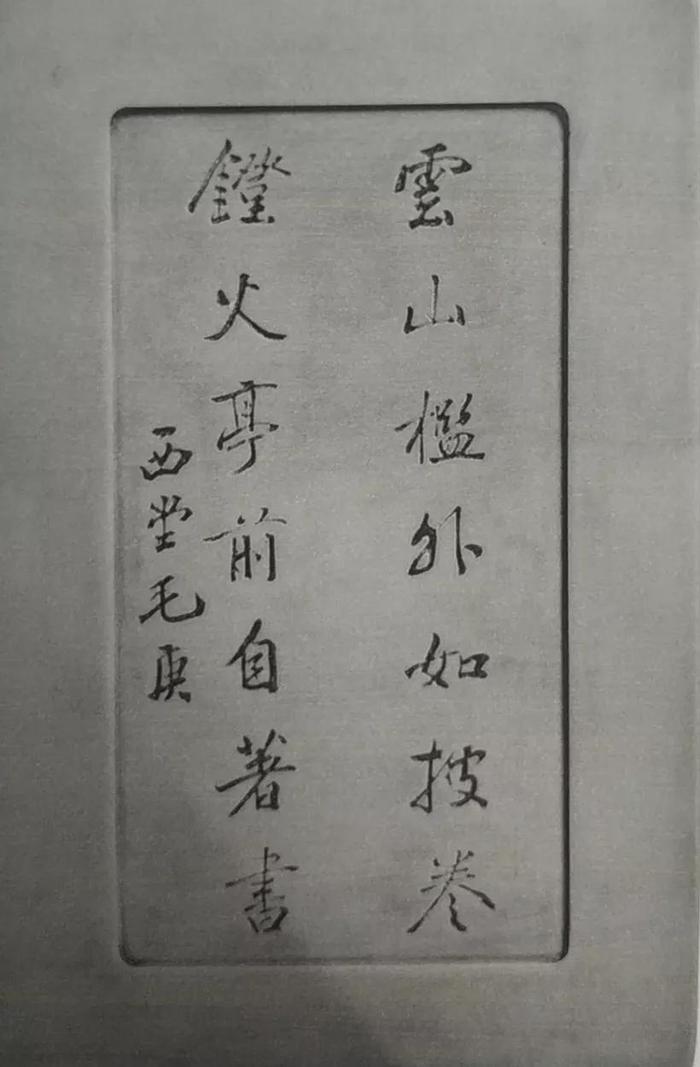 雲山檻外如披卷
鐙火亭前自著書
西堂毛庚